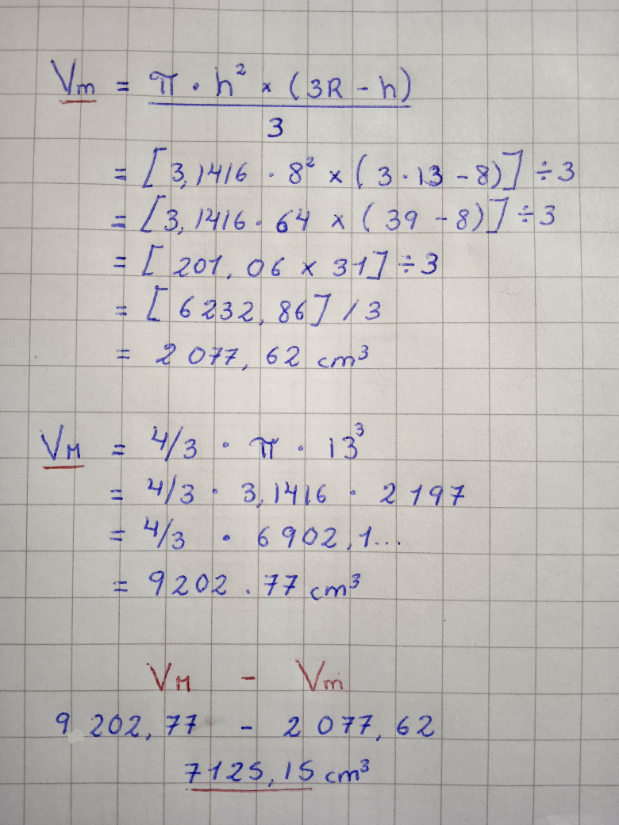 Vm = π · h² × (3R - h)
3
= [3,1416 · 8² × (3 · 13 - 8)] ÷ 3
= [3,1416 · 64 × (39 - 8)] ÷ 3
= [201,06 × 31] ÷ 3
= [6232,86] / 3
= 2 077,62 cm³
VM = 4/3 · π · 13³
= 4/3 · 3,1416 · 2 197
= 4/3 · 6 902,1...
= 9202.77 cm³
VM - Vm
9 202,77 - 2 077,62
7125,15 cm³